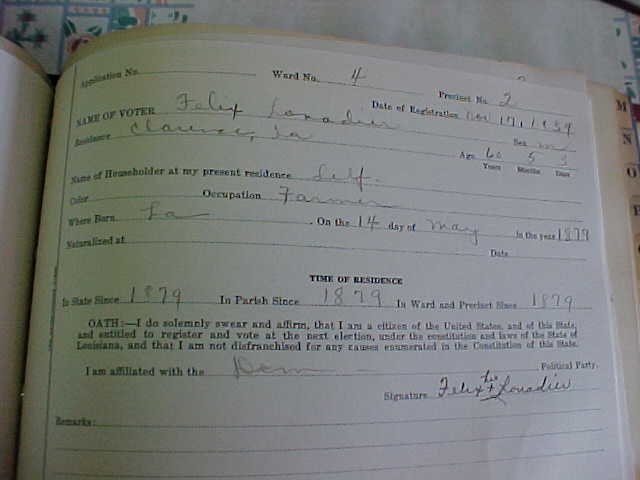 Application No.
Ward No. 4
Precinct No. 2
Date of Registration Nov 17, 1939
NAME OF VOTER Felix Lonadier
Sex m
Residence Clarence, La
Age 60 5 3
Years Months Days
Name of Householder at my present residence Self.
Color Occupation Farmer
Where Born La . On the 14 day of May in the year 1879
Naturalized at Date
TIME OF RESIDENCE
In State Since 1879 In Parish Since 1879 In Ward and Precinct Since 1879
OATH:—I do solemnly swear and affirm, that I am a citizen of the United States, and of this State,
and entitled to register and vote at the next election, under the constitution and laws of the State of
Louisiana, and that I am not disfranchised for any causes enumerated in the Constitution of this State.
I am affiliated with the Dem Political Party.
Signature Felix his x Lonadier
Remarks:
M
N
O